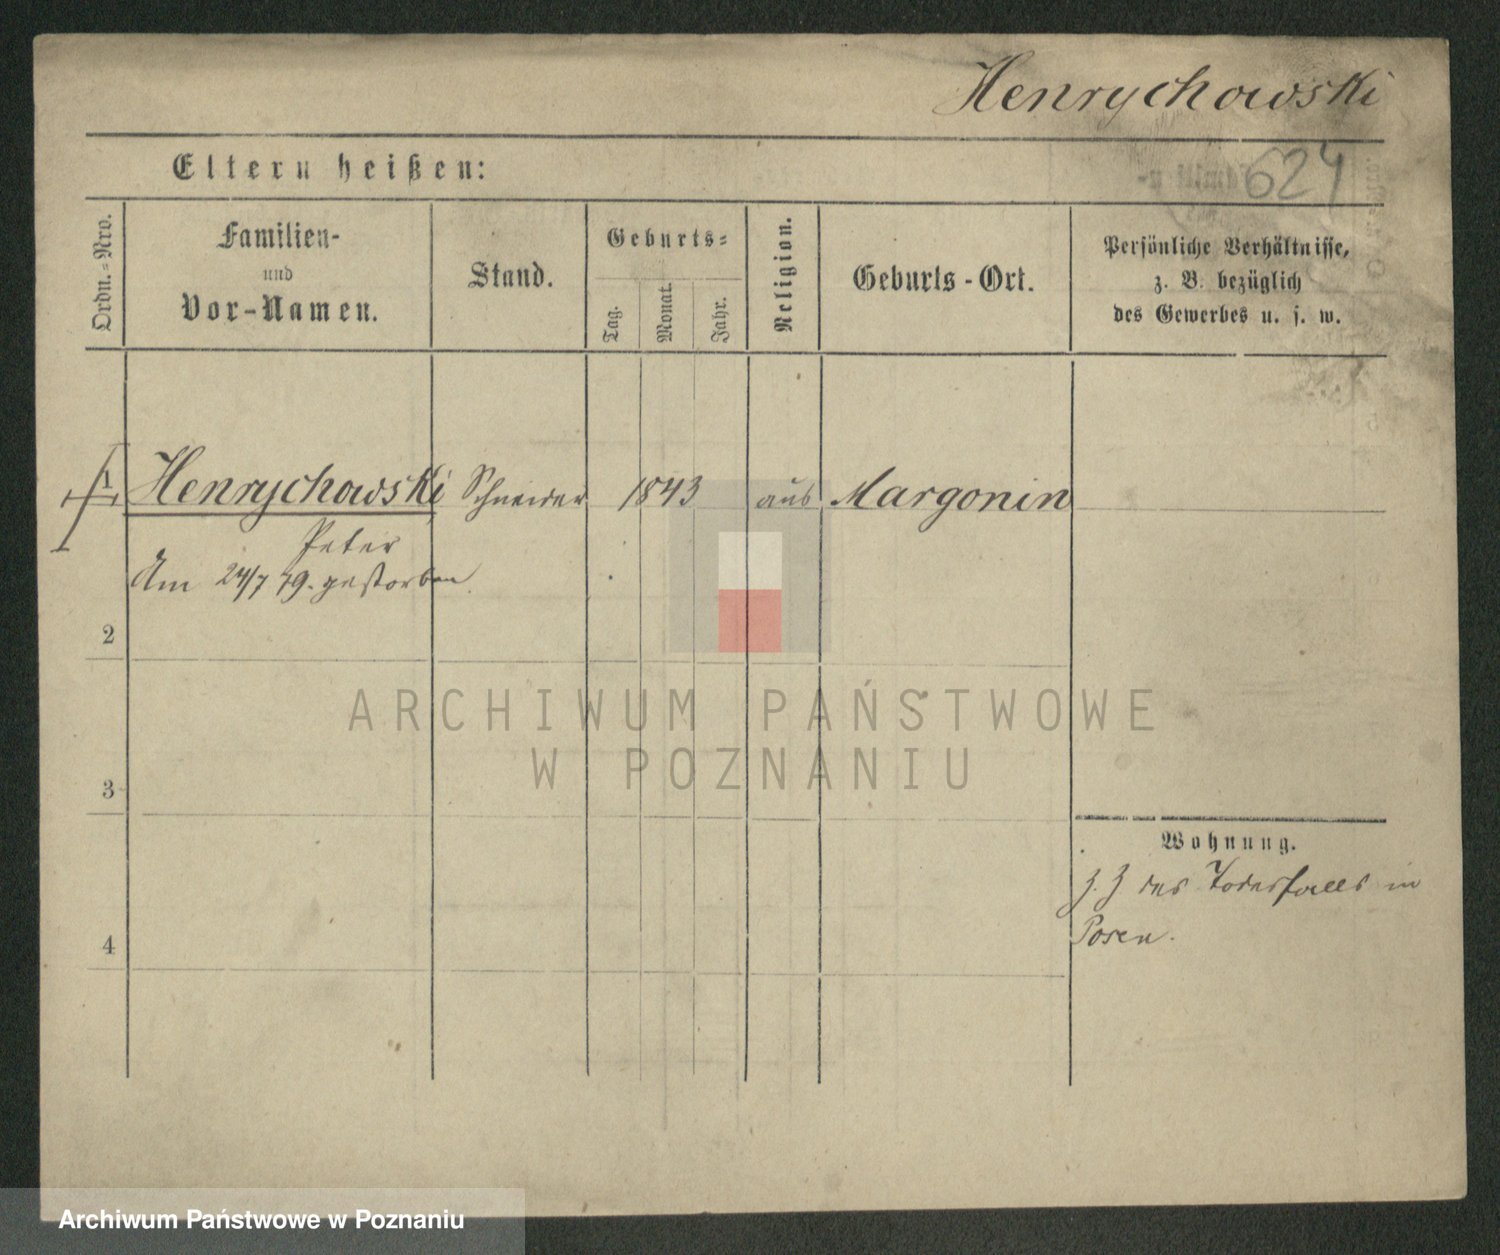 Henrychowski
624
Eltern heißen:
Ordn.-Nro.
Familien-
und
Vor-Namen.
Stand.
Geburts-
Tag.
Monat.
Jahr.
Religion.
Geburts-Ort.
Persönliche Verhältnisse,
z. B. bezüglich
des Gewerbes u. s. w.
1 Henrychowski Schneider 1843 aus Margonin
Peter
Am 24/7 79. gestorben.
2
ARCHIWUM PAŃSTWOWE
W POZNANIU
3
Wohnung.
z. Z des Todesfalls in
4
Posen.
Archiwum Państwowe w Poznaniu